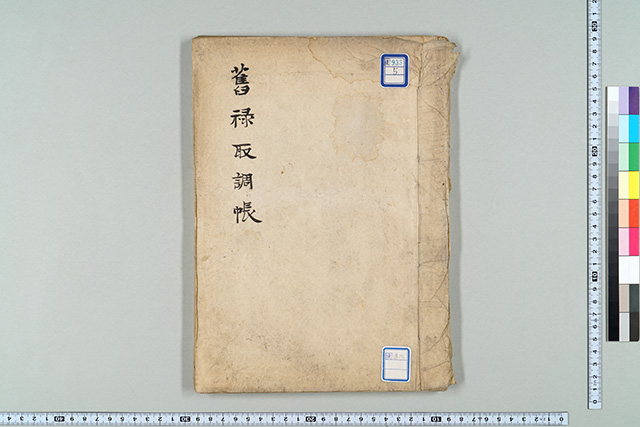 舊祿取調帳
933
5